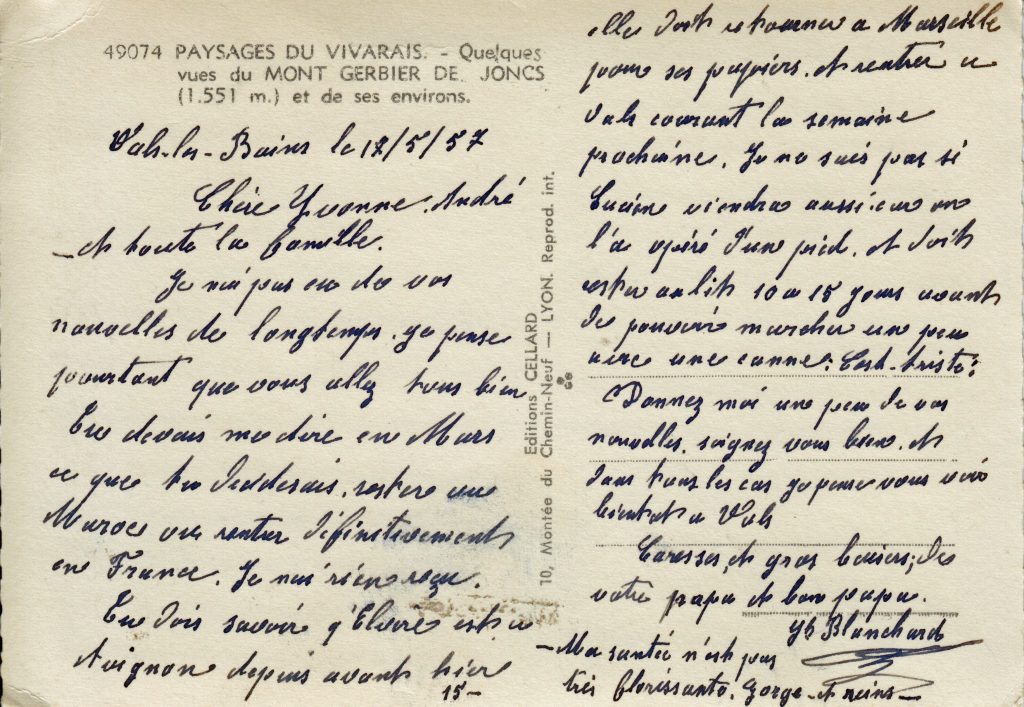 49074 PAYSAGES DU VIVARAIS. - Quelques
vues du MONT GERBIER DE JONCS
(1.551 m.) et de ses environs.
Vals-les-Bains le 17/5/57
Chère Yvonne. André
et toute la famille.
Je n'ai pas eu de vos
nouvelles de longtemps. je pense
pourtant que vous allez tous bien
Tu devais me dire en Mars
ce que tu décidesais. rester au
Maroc ou rentrer définitivement
en France. Je n'ai rien reçu.
Tu dois savoir q'Elvire est a
Avignon depuis avant hier
15-
elle doit retourner a Marseille
pour ses papiers. et rentrer a
Vals courant la semaine
prochaine. Je ne sais pas si
Lucien viendra aussi car on
l'a opéré d'un pied. et doit
rester au lit 10 a 15 jours avant
de pouvoir marcher un peu
avec une canne: C'est triste:
Donnez moi un peu de vos
nouvelles. soignez vous bien. et
dans tous les cas je pense vous voir
bientot a Vals
Caresses, et gros baisers, de
votre papa et bon papa.
Blanchard
- Ma santée n'est pas
très florissante. Gorge - et reins -
Editions CELLARD
10, Montée du Chemin-Neuf — LYON. Reprod. int.